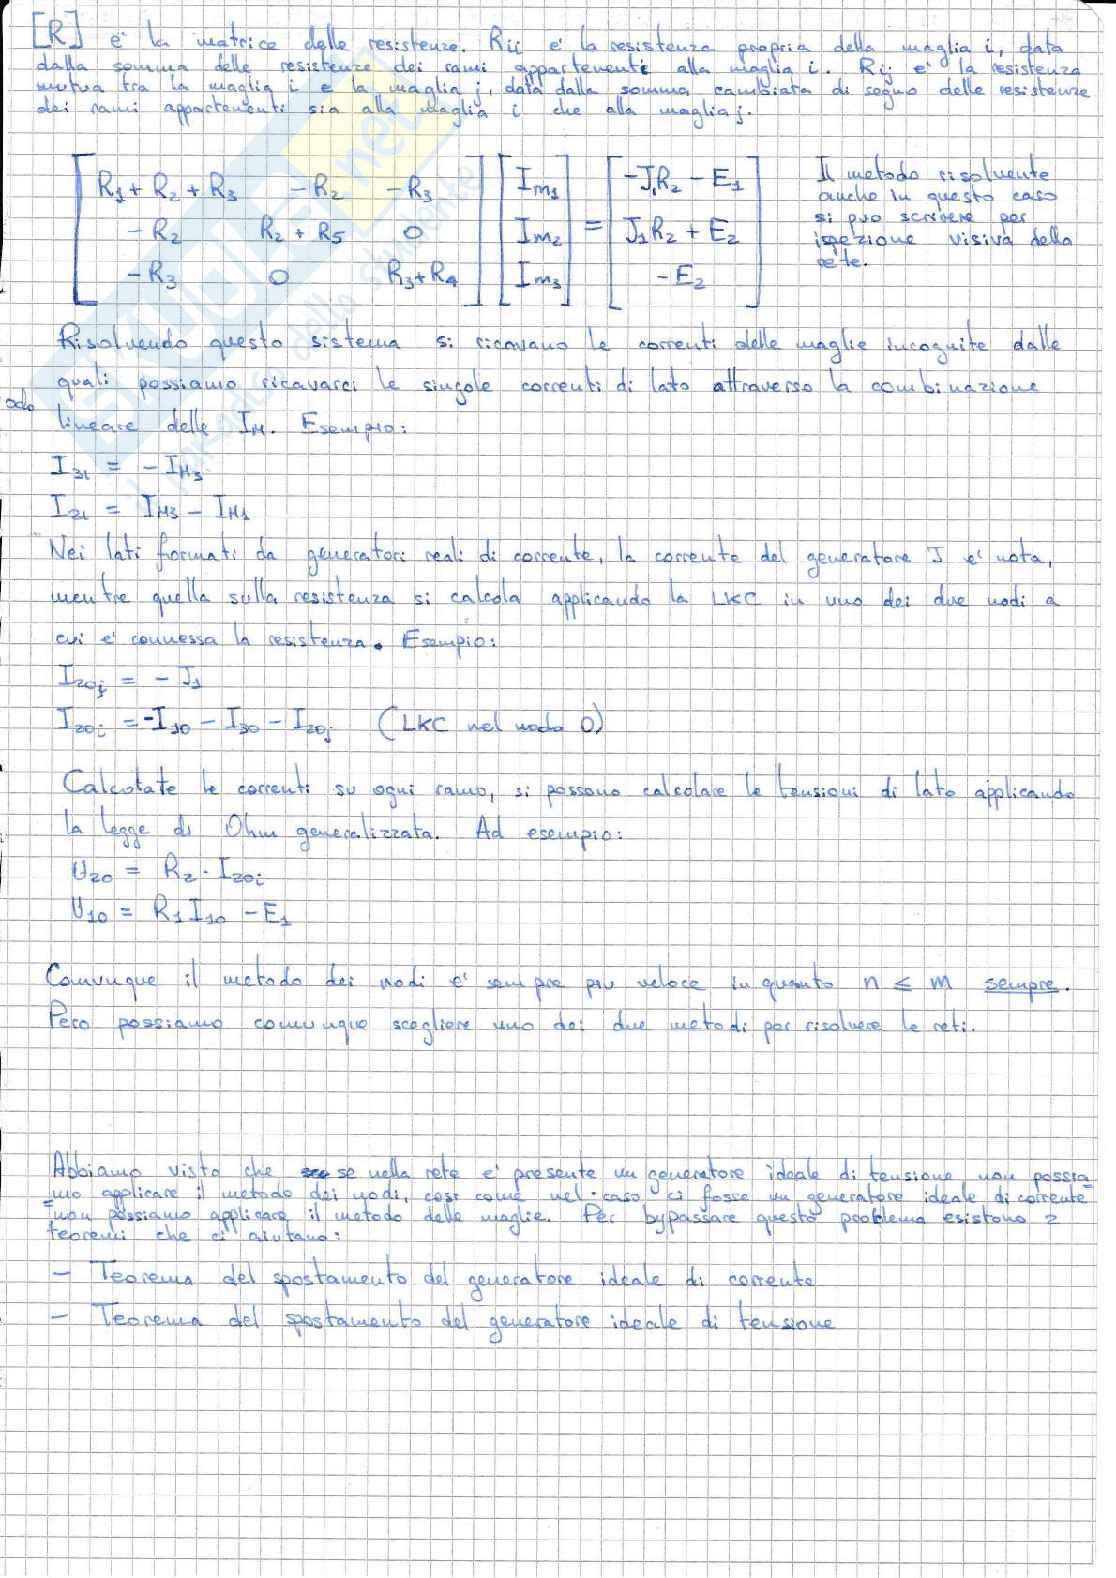 [R] e' la matrice delle resistenze. Rii e' la resistenza propria della maglia i, data
dalla somma delle resistenze dei rami appartenenti alla maglia i. Rij e' la resistenza
mutua tra la maglia i e la maglia j, data dalla somma cambiata di segno delle resistenze
dei rami appartenenti sia alla maglia i che alla maglia j.
[R1 + R2 + R3   -R2   -R3] [Im1] = [-J1R2 - E1]
[-R2   R2 + R5   0] [Im2] = [J1R2 + E2]
[-R3   0   R3+R4] [Im3] = [-E2]
Il metodo risolvente
anche in questo caso
si può scrivere per
ispezione visiva della
rete.
Risolvendo questo sistema si ricavano le correnti delle maglie incognite dalle
quali possiamo ricavarci le singole correnti di lato attraverso la combinazione
odo
lineare delle IM. Esempio:
I31 = - IM3
I21 = IM3 - IM1
Nei lati formati da generatori reali di corrente, la corrente del generatore J e' nota,
mentre quella sulla resistenza si calcola applicando la LKC in uno dei due nodi a
cui e' connessa la resistenza. Esempio:
I20j = - J1
I20i = -I10 - I30 - I20j (LKC nel nodo 0)
Calcolate le correnti su ogni ramo, si possono calcolare le tensioni di lato applicando
la legge di Ohm generalizzata. Ad esempio:
U20 = R2 · I20i
U10 = R1 I10 - E1
Comunque il metodo dei nodi e' sempre piu veloce in quanto n ≤ m sempre.
Però possiamo comunque scegliere uno dei due metodi per risolvere le reti.
Abbiamo visto che se nella rete e' presente un generatore ideale di tensione non possia=
=mo applicare il metodo dei nodi, così come nel caso ci fosse un generatore ideale di corrente
non possiamo applicare il metodo delle maglie. Per bypassare questo problema esistono 2
teoremi che ci aiutano:
- Teorema del spostamento del generatore ideale di corrente
- Teorema del spostamento del generatore ideale di tensione